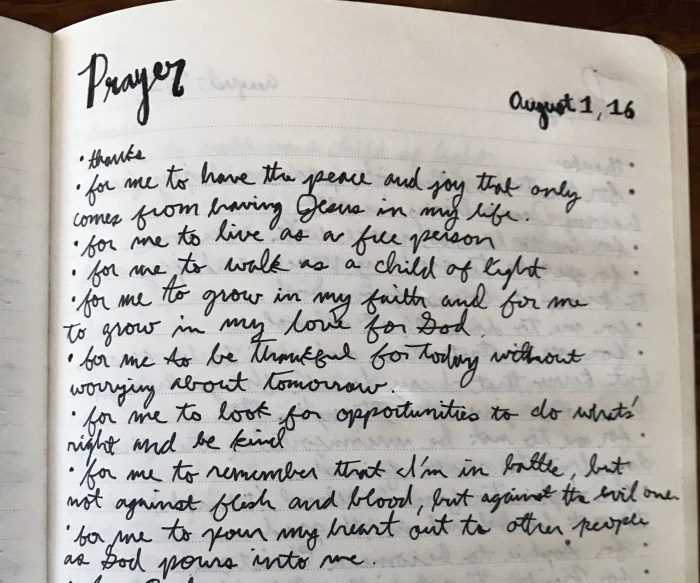 Prayer
August 1, 16
• thanks
• for me to have the peace and joy that only
comes from having Jesus in my life.
• for me to live as a free person
• for me to walk as a child of light
• for me to grow in my faith and for me
to grow in my love for God.
• for me to be thankful for today without
worrying about tomorrow.
• for me to look for opportunities to do what's
right and be kind
• for me to remember that I'm in battle, but
not against flesh and blood, but against the evil one.
• for me to pour my heart out to other people
as God pours into me.